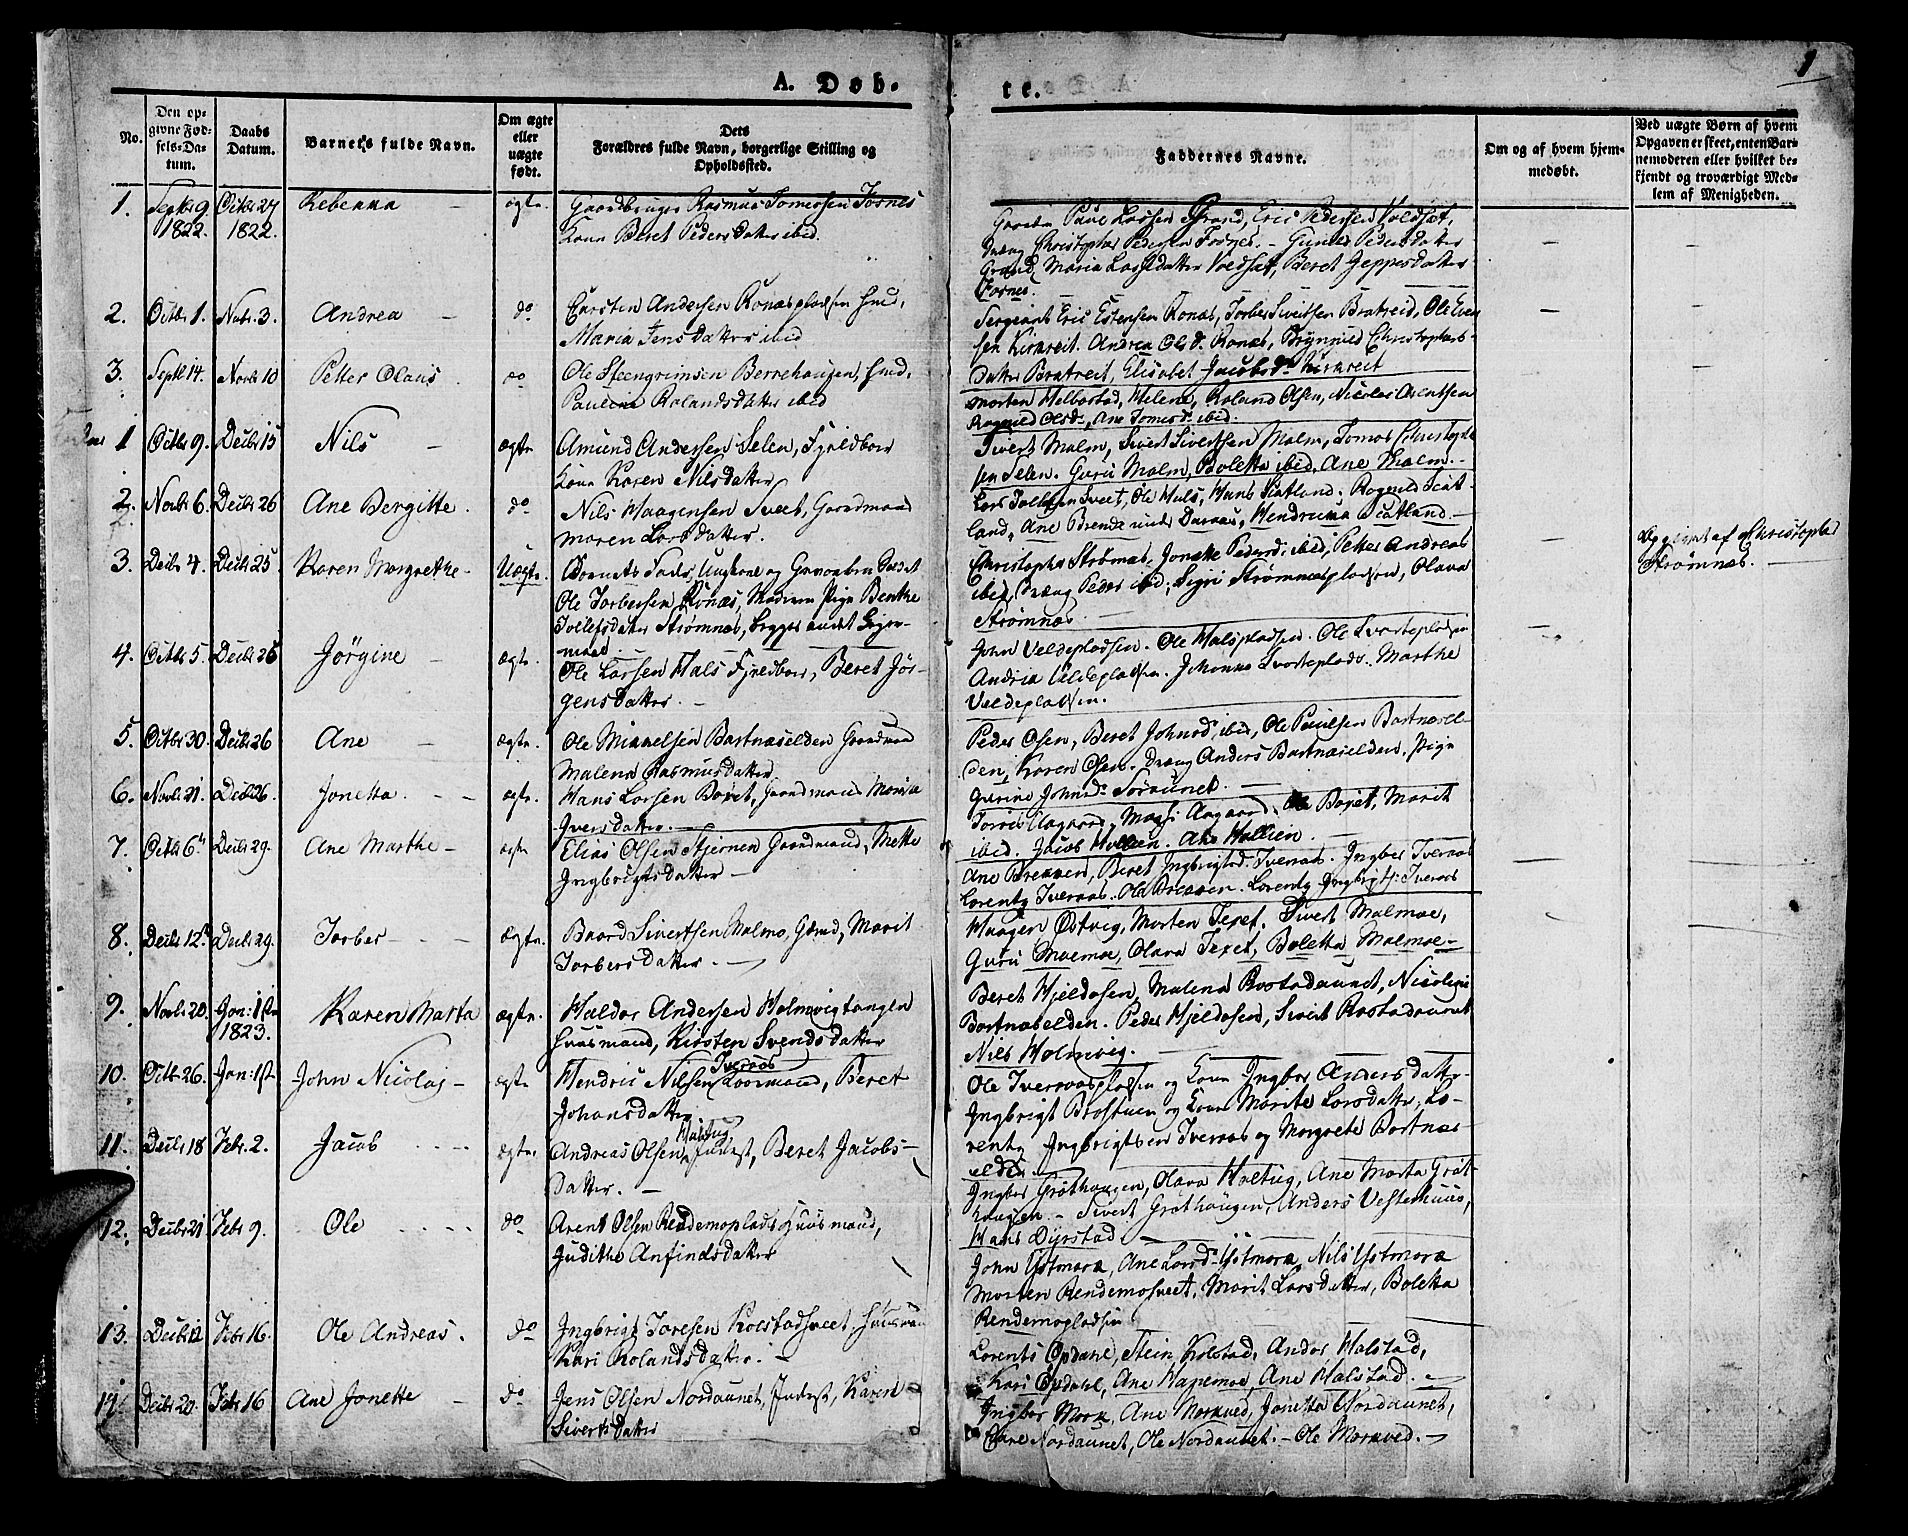 A. Døb-
te.
1
No.
Den op-
givne Fød-
sels-Da-
tum.
Daabs
Datum.
Barnets fulde Navn.
Om ægte
eller
uægte
født.
Dets
Forældres fulde Navn, borgerlige Stilling og
Opholdssted.
Faddernes Navne.
Om og af hvem hjem-
medøbt.
Ved uægte Børn af hvem
Opgaven er skeet, enten Bar-
nemoderen eller hvilket be-
kjendt og troværdigt Med-
lem af Menigheden.
1. Septbr 9. 1822. Octbr 27 1822. Rebekka ægte. Gaardbruger Rasmus Tomessen Fosnes
Kone Beret Pedersdatter ibid.
Paul Larsen Strand, Eric Pedersen Voldsæt,
Christopher Pedersen Fosnes. Pedersdatter
Strand, Maria Larsdatter Voldsæt, Beret Jeppesdatter
Fosnes.
2. Octbr 1. Novbr. 3. Andrea do Carsten Andersen Ronæspladsen
Maria Jensdatter ibid
Sergeant Eric Estensen Ronæs, Torber Sivertsen Bratreid, Ole Even
sen Kirkreit. Andrea Olsd. Ronæs, Christophers
Datter Bratreit, Elisabet Jacobsd. Kirkreit
3. Septbr 14. Novbr 10 Petter Olaus do Ole Steengrimsen Berrehaugen,
Paulina Rolandsdatter ibid
Morten Helbostad, Helena, Roland Olsen, Nicolai Arentsen
Ragnild Olsd., Ane Tomesd. ibid.
1 Octbr 9. Decbr 15 Nils ægte Amund Andersen Selen,
Kone Karen Nilsdatter
Sivert Malm, Sivert Sivertsen Malm, Tomas Christophe
sen Selen. Guru Malm, Boletta ibid, Ane Malm.
2. Novbr 6. Decbr 26 Ane Bergitte. do Nils Haagensen Tveet, Gaardmand
Maren Larsdatter.
Lars Tollefsen Tveet, Ole Hals, Hans Scatland. Ragnild Scat-
land, Ane Brende Scatland
3. Decbr 4. Decbr 25 Karen Margrethe Uægte. Barnets Fader, Ungkarl og
Ole Torbersen Ronæs, Moderen Pige Benthe
Tollefsdatter Strømnæs,
Christopher Strømnæs. Jonette Pedersd. ibid, Petter Andreas
ibid, Peder ibid, Sigri Strømnæspladsen, Olava
Strømnæs
Opgivet af Christopher
Strømnæs.
4. Octbr 5. Decbr 26 Jørgine ægte. Ole Larsen Hals, Beret Jør-
gensdatter.
John Veldepladsen. Ole Halspladsen. Ole Svartepladsen
Andrea Veldepladsen. Johanna Svarteplads. Marthe
Veldepladsen.
5. Octbr 30. Decbr 26 Ane ægte. Ole Mikkelsen Bartnæselden Gaardmand
Malena Rasmusdatter
Peder Olsen, Beret Johnsd. ibid, Ole Paulsen Bartnæsel-
den, Karen Olsen. Anders Bartnæselden. Pige
Gurine Johnsd. Søraunet.
6. Novbr 21. Decbr 26. Jonetta. ægte. Hans Larsen Børet, Gaardmand Marita
Iversdatter.
Aagaard, Aagaard, Ole Bøxet, Marit
ibid. Jacob Hollien. Ane Hollien.
7. Octbr 6. Decbr 29. Ane Marthe ægte Elias Olsen Stjernen Gaardmand, Mette
Ingbrigtsdatter
Ane Brekken, Beret Ingbrigtsd. Iveraas. Ingber Iveraas
Lorentz Iveraas. Ole Brekken. Lorentz Ingbrigts. Iveraas
8. Decbr 12. Decbr 29. Torber ægte. Baard Sivertsen Malmo, Marit
Torbersdatter.
Haagen Østvig, Morten Texet. Sivert Malmoe,
Guru Malmoe, Olava Texet, Boletta Malmoe
9. Novbr 20. Jan: 1ste 1823. Karen Marta ægte. Haldor Andersen Holmvigtangen
Huusmand, Kirsten Svendsdatter
Beret Hjeldosen, Malena Rostadaunet, Nicoline
Bartnæselden. Peder Hjeldosen, Sivert Rostadaunet
Nils Holmvig.
10. Octbr 26. Jan: 1ste John Nicolaj ægte Hendric Nilsen Iveraas, Beret
Johansdatter
Ole Iveraaspladsen og Kone Ingber Andersdatter
Ingbrigt Brostuen og Kone Marite Larsdatter, Lo-
rentz Ingbrigtsen Iveraas og Margrete Bartnæs-
elden.
11. Decbr 18 Febr. 2. Jacob ægte. Andreas Olsen Holtug Inderst, Beret Jacobs-
datter.
Ingber Gråthaugen, Olava Holtug, Ane Marta Gråt-
haugen. Sivert Gråthaugen, Anders Vesterhuus,
Hans Dyrstad
12. Decbr 21 Febr 9. Ole do Arent Olsen Rendemoplads Huusmand,
Judithe Anfindsdatter
John Ystmark, Ane Larsd. Ystmark, Nils Ystmark
Morten Rendemotveet, Marit Larsdatter, Boletta
Rendemopladsen
13. Decbr 12 Febr 16. Ole Andreas. do Ingbrigt Toresen Kolstadtveet, Huusmand
Kari Rolandsdatter.
Lorents Opdahl, Stein Kolstad, Andor Halstad,
Kari Opdahl, Ane Hapemoe, Ane Halstad.
14 Decbr 20. Febr 16 Ane Jonette do Jens Olsen Nordaunet, Inderst, Karen
Sivertsdatter
Ingber Mork, Ane Morkved, Jonetta Nordaunet,
Nordaunet, Ole Nordaunet. Ole Morkved.